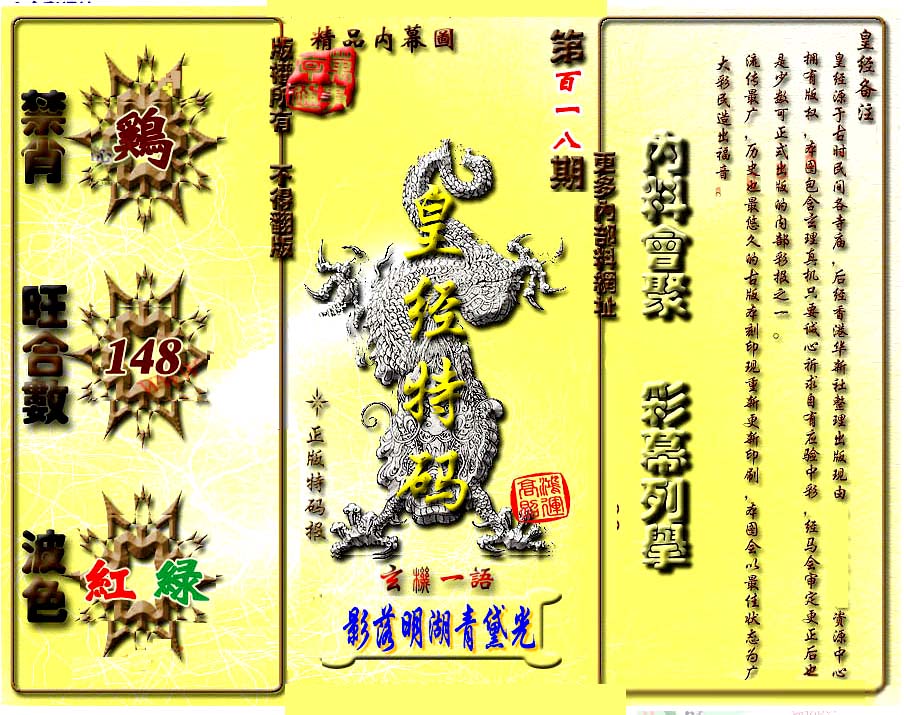 皇经备注
皇经源于古时民间各寺庙，后经香港华新社整理出版现由 资源中心
拥有版权，本图包含玄理真机只要诚心祈求自有应验中彩，经马会审定更正后也
是少数可正式出版的内部彩报之一。
流传最广，历史也最悠久的古版本刻印现重新更新印刷，本图会以最佳状态为广
大彩民造出福音
内料會聚
彩幕列舉
更多內部料網址
第百一八期
精品内幕圖
皇经特码
正版特码报
鴻運高照
玄機一語
影落明湖青黛光
版權所有 不得翻版
禁肖
鷄
旺合數
148
波色
紅 綠